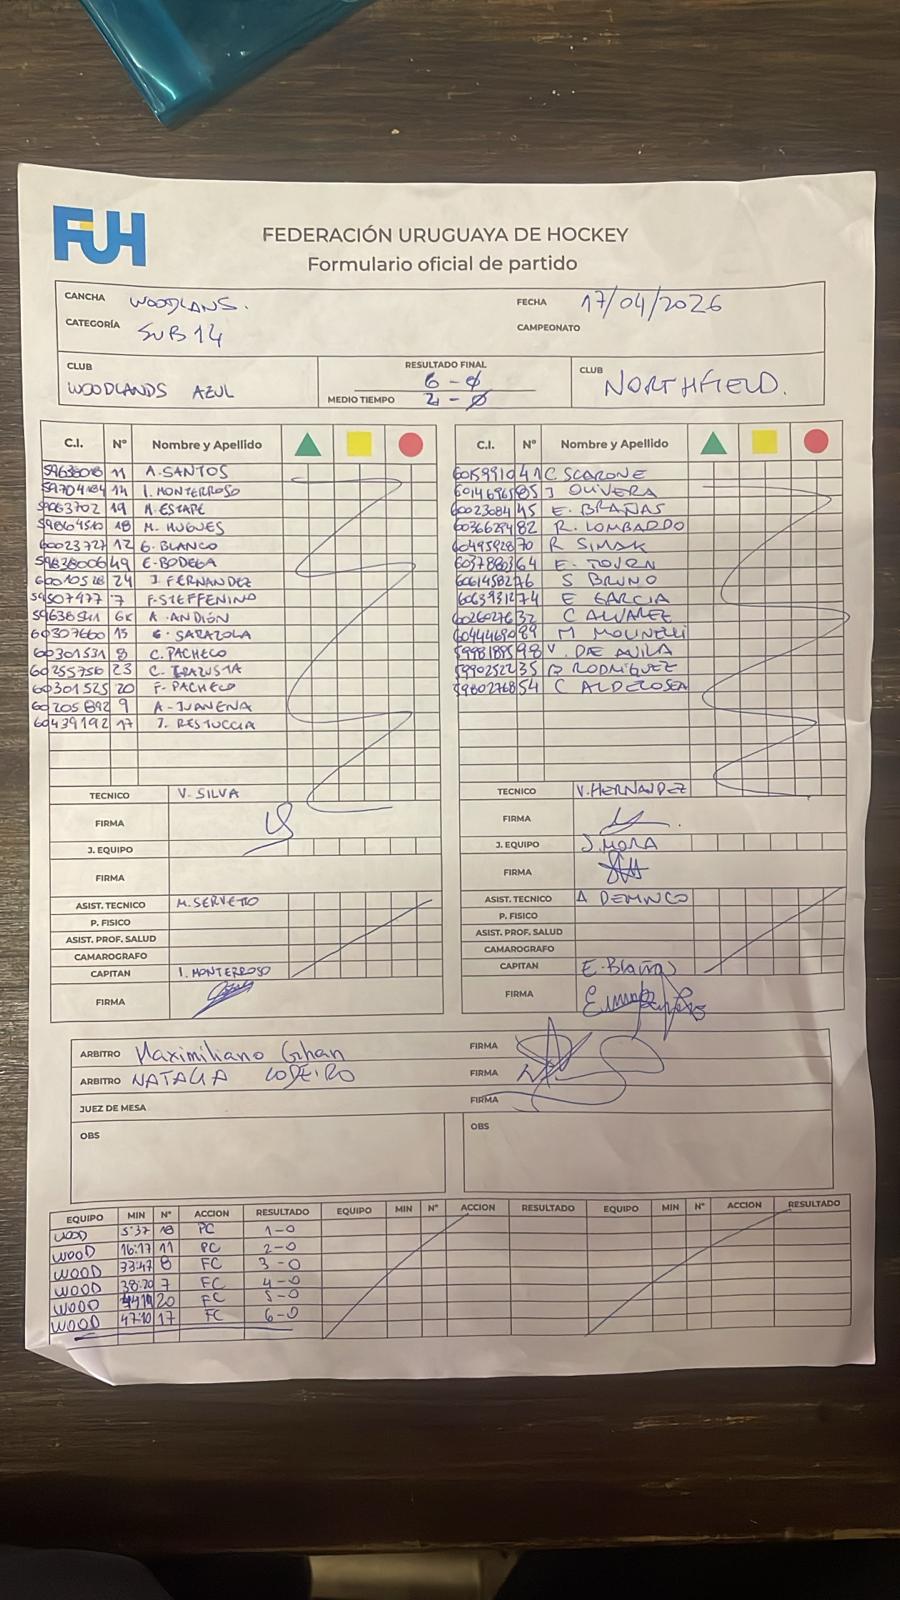 FUH
FEDERACIÓN URUGUAYA DE HOCKEY
Formulario oficial de partido
CANCHA WOODLANS. FECHA 17/04/2026
CATEGORÍA SUB 14 CAMPEONATO
CLUB WOODLANDS AZUL
RESULTADO FINAL 6-0
MEDIO TIEMPO 2-0
CLUB NORTHFIELD.
C.I. Nº Nombre y Apellido
11 A. SANTOS
14 I. MONTERROSO
19 M. ESTAPE
18 M. HUGUES
60023727 12 G. BLANCO
49 E. BODEGA
24 J. FERNANDEZ
7 F. STEFFENINO
A. ANDIÓN
60307660 15 G. SARAZOLA
60301531 8 C. PACHECO
60255756 23 C. IRAZUSTA
60301525 20 F. PACHECO
60205892 9 A. JUANENA
60439192 17 J. RESTUCCIA
TECNICO V. SILVA
FIRMA
J. EQUIPO
FIRMA
ASIST. TECNICO M. SERVETTO
P. FISICO
ASIST. PROF. SALUD
CAMAROGRAFO
CAPITAN I. MONTERROSO
FIRMA
C.I. Nº Nombre y Apellido
41 C SCARONE
85 J OLIVERA
60023684 45 E. BRAÑAS
82 R. LOMBARDO
60495928 70 R SIMAK
64 E. TOURN
76 S BRUNO
74 E GARCIA
32 C ALVAREZ
89 M MOLINELLI
98 V. DE AVILA
35 RODRIGUEZ
59802768 54 C ALDECOSEA
TECNICO V. HERNANDEZ
FIRMA
J. EQUIPO J. MORA
FIRMA
ASIST. TECNICO A DEMINCO
P. FISICO
ASIST. PROF. SALUD
CAMAROGRAFO
CAPITAN E. Brañas
FIRMA
ARBITRO Maximiliano Ghan FIRMA
ARBITRO NATALIA LODEIRO FIRMA
JUEZ DE MESA FIRMA
OBS OBS
EQUIPO MIN Nº ACCION RESULTADO EQUIPO MIN Nº ACCION RESULTADO EQUIPO MIN Nº ACCION RESULTADO
WOOD 5:37 18 PC 1-0
WOOD 16:17 11 PC 2-0
WOOD 33:47 8 FC 3-0
WOOD 38:20 7 FC 4-0
WOOD 20 FC 5-0
WOOD 47:10 17 FC 6-0